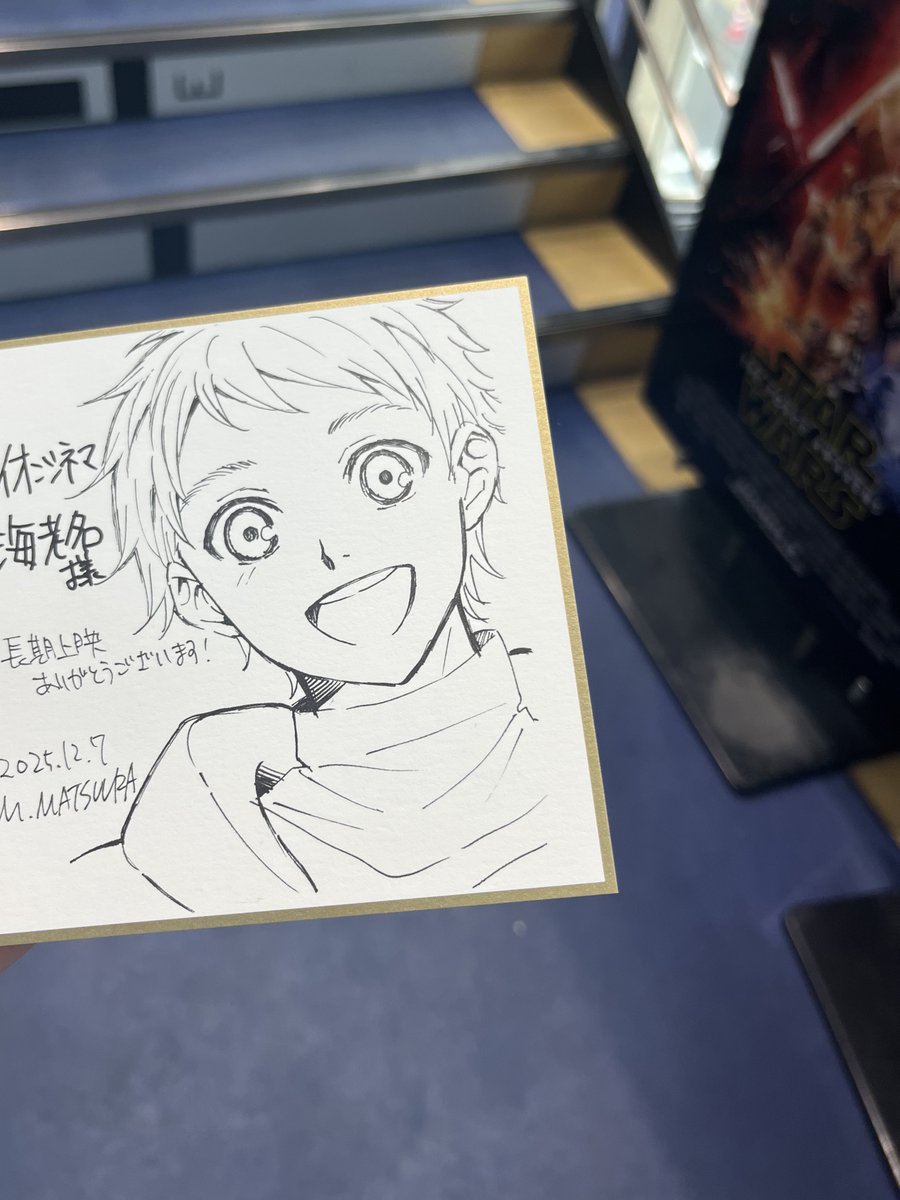 イオンシネマ
海老名
様
長期上映
ありがとうございます!
2025.12.7
M.MATSURA
STAR
WARS